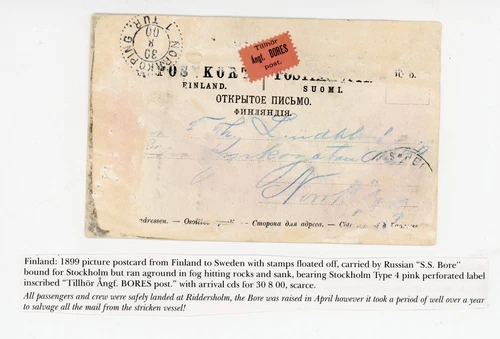 NORRKÖPING 1 TUR
30
8
00
Tillhör
Ångf. BORES
post.
POST KORT
FINLAND. SUOMI.
ОТКРЫТОЕ ПИСЬМО.
ФИНЛЯНДІЯ.
Сторона для адреса.
Finland: 1899 picture postcard from Finland to Sweden with stamps floated off, carried by Russian "S.S. Bore"
bound for Stockholm but ran aground in fog hitting rocks and sank, bearing Stockholm Type 4 pink perforated label
inscribed "Tillhör Ångf. BORES post." with arrival cds for 30 8 00, scarce.
All passengers and crew were safely landed at Riddersholm, the Bore was raised in April however it took a period of well over a year
to salvage all the mail from the stricken vessel!